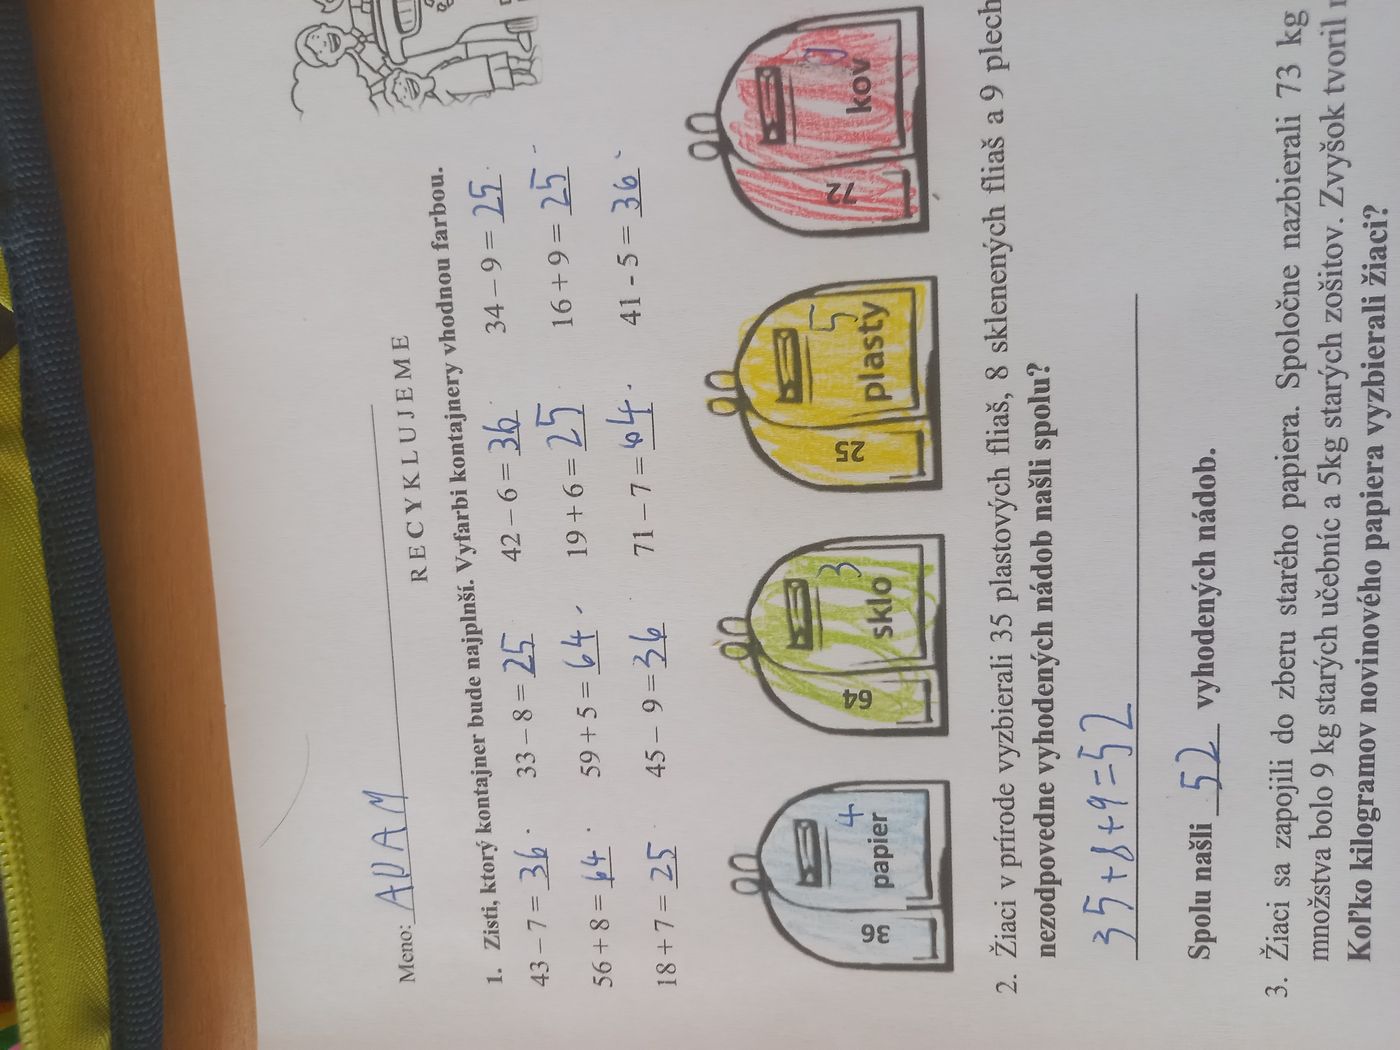 Meno: ADAM
RECYKLUJEME
1. Zisti, ktorý kontajner bude najplnší. Vyfarbi kontajnery vhodnou farbou.
43 – 7 = 36 33 – 8 = 25 42 – 6 = 36 34 – 9 = 25
56 + 8 = 64 59 + 5 = 64 19 + 6 = 25 16 + 9 = 25
18 + 7 = 25 45 – 9 = 36 71 – 7 = 64 41 - 5 = 36
36 papier 4
64 sklo 3
25 plasty 5
72 kov 0
2. Žiaci v prírode vyzbierali 35 plastových fliaš, 8 sklenených fliaš a 9 plech
nezodpovedne vyhodených nádob našli spolu?
35+8+9=52
Spolu našli 52 vyhodených nádob.
3. Žiaci sa zapojili do zberu starého papiera. Spoločne nazbierali 73 kg
množstva bolo 9 kg starých učebníc a 5kg starých zošitov. Zvyšok tvoril
Koľko kilogramov novinového papiera vyzbierali žiaci?